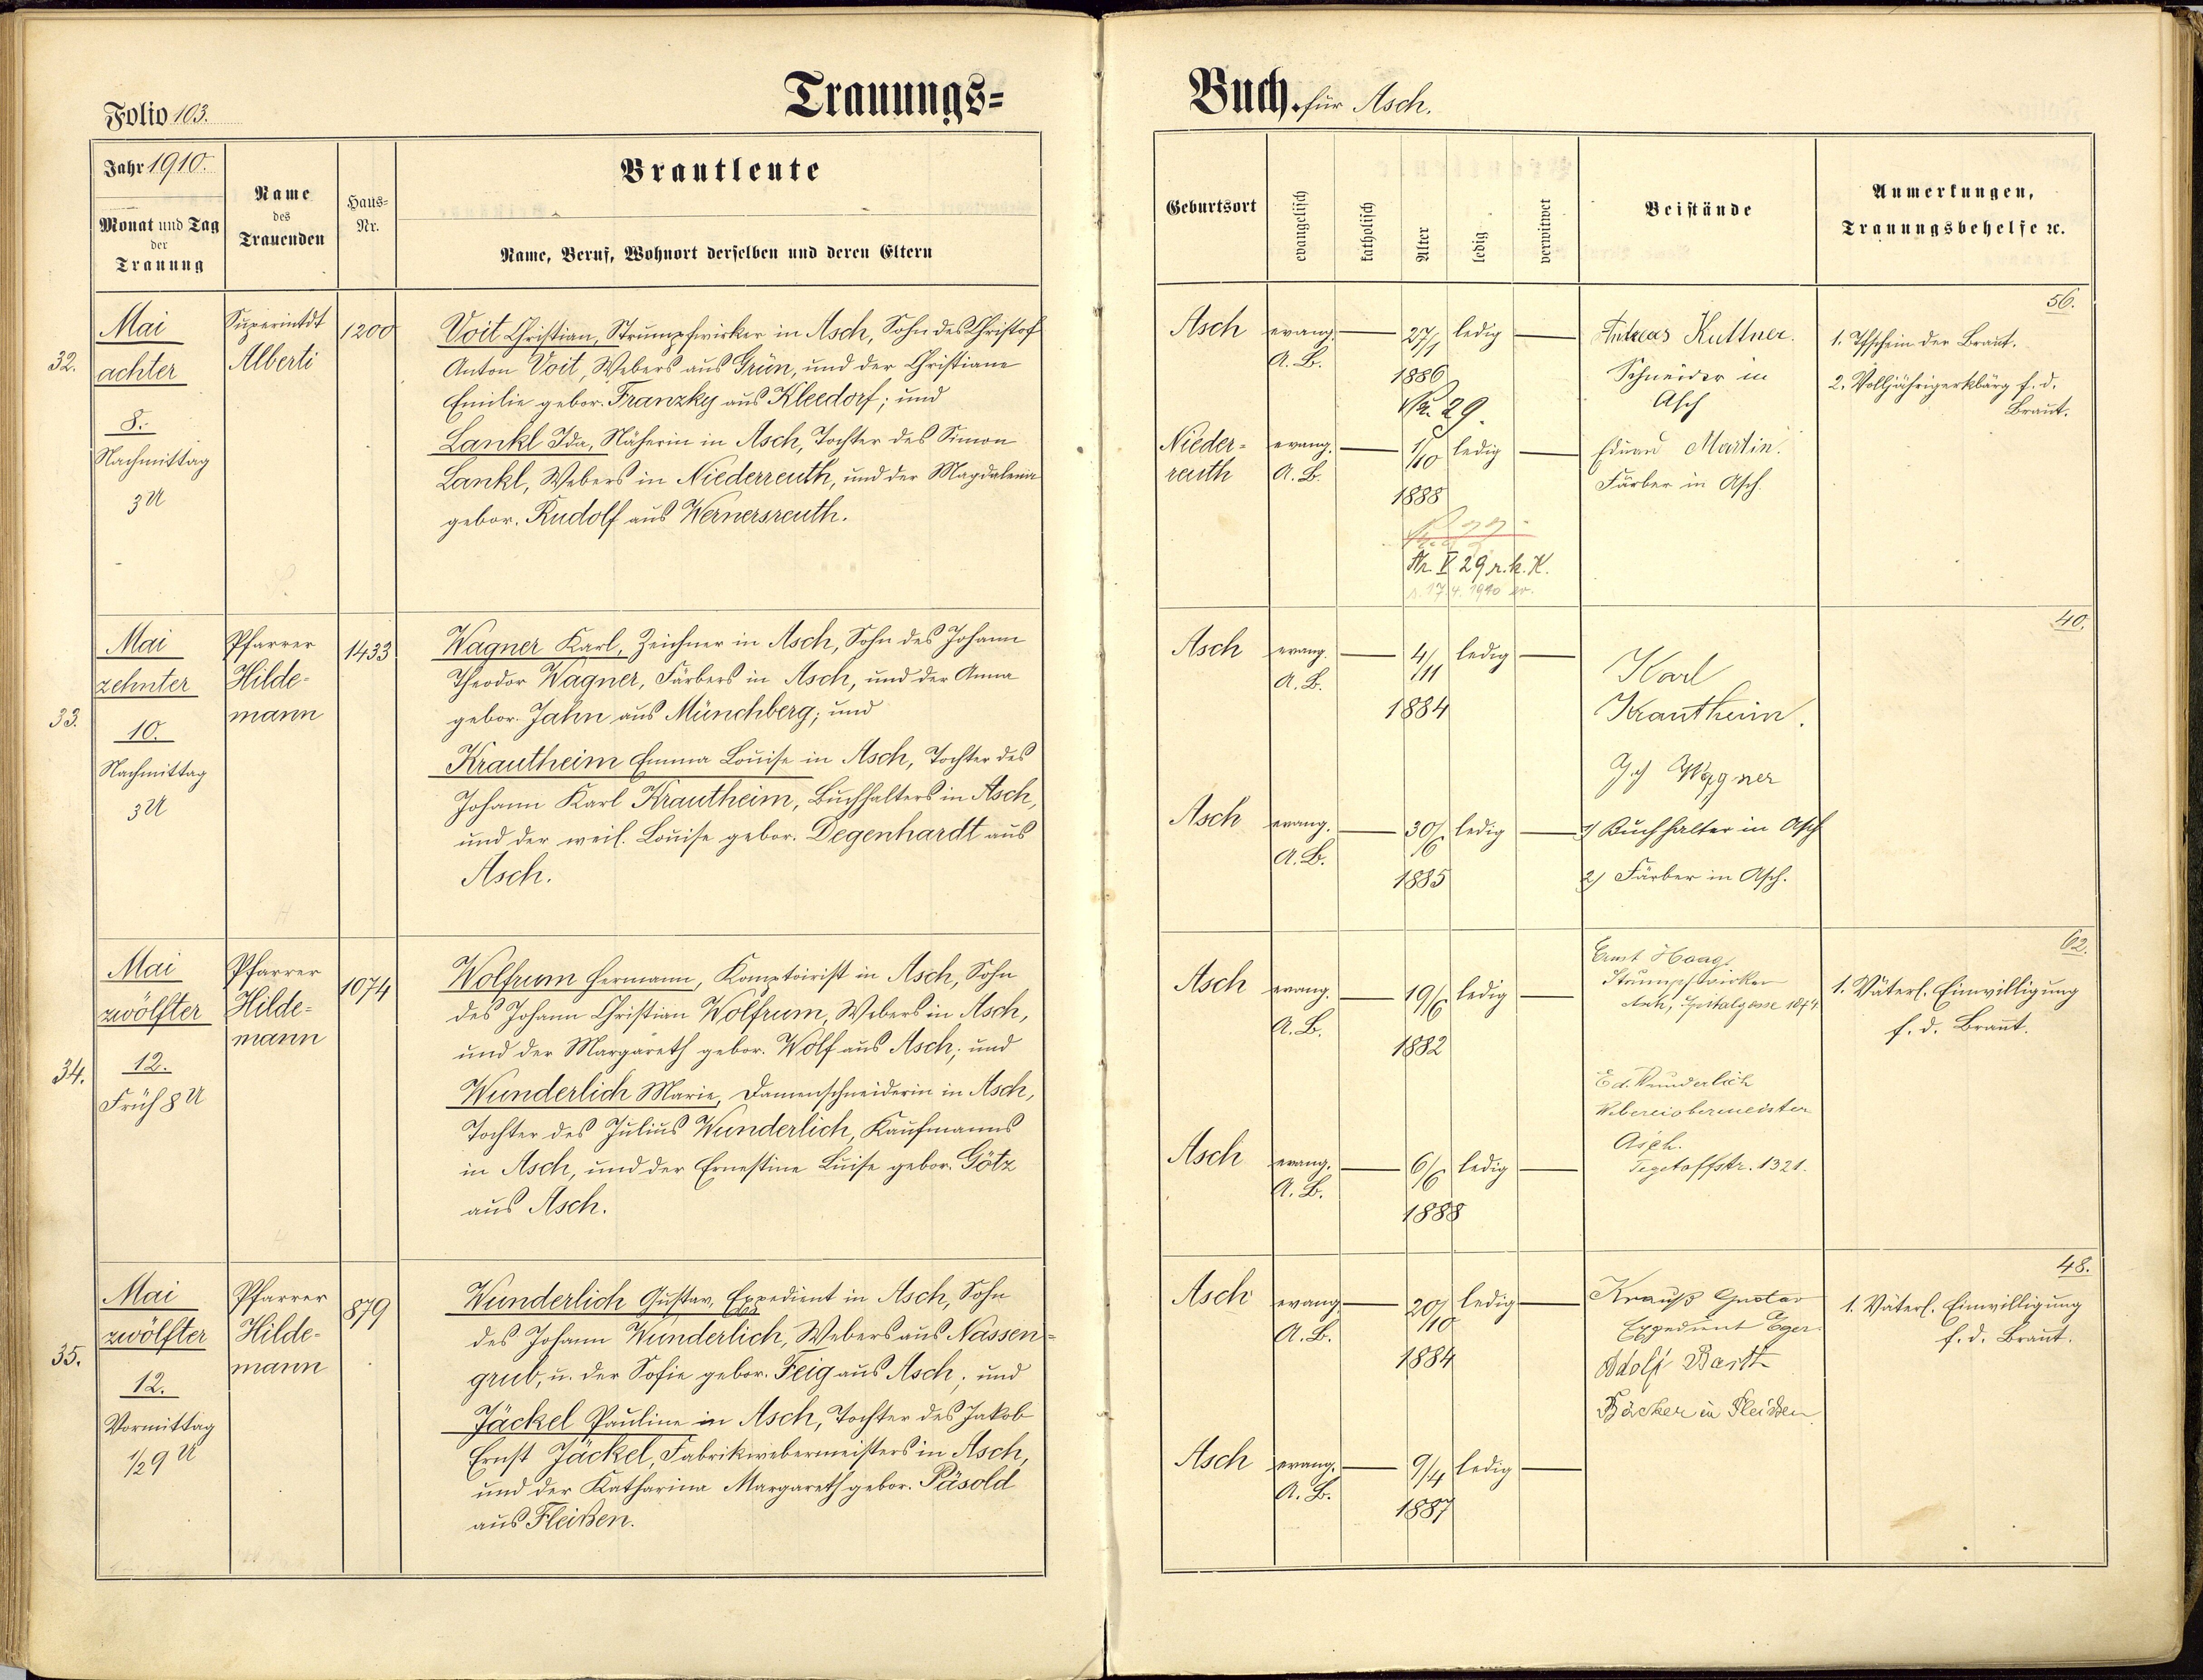 Folio 103.
Trauungs=
Buch. für Asch.
Jahr 1910.
Monat und Tag
der
Trauung
Name
des
Trauenden
Haus=
Nr.
Brautleute
Name, Beruf, Wohnort derselben und deren Eltern
Geburtsort
evangelisch
katholisch
Alter
ledig
verwitwet
Beistände
Anmerkungen,
Trauungsbehelfe ꝛc.
32.
Mai
achter
8.
Nachmittag
3 U
Superintdt
Alberti
1200
Voit Christian, Strumpfwirker in Asch, Sohn des Christof
Anton Voit, Webers aus Grün, und der Christiane
Emilie gebor. Franzky aus Kleedorf; und
Lankl Ida, Näherin in Asch, Tochter des Simon
Lankl, Webers in Niederreuth, und der Magdalena
gebor. Rudolf aus Wernersreuth.
Asch evang. A. B. 27/1 1886 ledig
Nr. 29.
Nieder=
reuth evang. A. B. 1/10 1888 ledig
Nr. V 29 r. k. K.
Andreas Kuttner.
Schneider in
Asch
Eduard Martin.
Färber in Asch.
56.
1. Tfschein der Braut.
2. Volljährigerklärg f. d.
Braut.
33.
Mai
zehnter
10.
Nachmittag
3 U
Pfarrer
Hilde=
mann
1433
Wagner Karl, Zeichner in Asch, Sohn des Johann
Theodor Wagner, Färbers in Asch, und der Anna
gebor. Jahn aus Münchberg; und
Krautheim Emma Louise in Asch, Tochter des
Johann Karl Krautheim, Buchhalters in Asch,
und der weil. Louise gebor. Degenhardt aus
Asch.
Asch evang. A. B. 4/11 1884 ledig
Asch evang. A. B. 30/6 1885 ledig
Karl
Krautheim.
Wagner
1) Buchhalter in Asch
2) Färber in Asch.
40.
34.
Mai
zwölfter
12.
Früh 8 U
Pfarrer
Hilde=
mann
1074
Wolfrum Hermann, Komptoirist in Asch, Sohn
des Johann Christian Wolfrum, Webers in Asch,
und der Margareth gebor. Wolf aus Asch; und
Wunderlich Marie, Damenschneiderin in Asch,
Tochter des Julius Wunderlich, Kaufmanns
in Asch, und der Ernestine Luise gebor. Götz
aus Asch.
Asch evang. A. B. 19/6 1882 ledig
Asch evang. A. B. 6/6 1888 ledig
Ernst Haag
Strumpfwirker
Asch, Spitalgasse 1074.
Ed. Wunderlich
Webereiobermeister
Asch.
Tegetoffstr. 1321.
62.
1. Väterl. Einwilligung
f. d. Braut.
35.
Mai
zwölfter
12.
Vormittag
1/2 9 U
Pfarrer
Hilde=
mann
879
Wunderlich Gustav, Expedient in Asch, Sohn
des Johann Wunderlich, Webers aus Nassen=
grub, u. der Sofie gebor. Feig aus Asch; und
Jäckel Pauline in Asch, Tochter des Jakob
Ernst Jäckel, Fabrikwebermeisters in Asch,
und der Katharina Margareth gebor. Päsold
aus Fleißen.
Asch evang. A. B. 20/10 1884 ledig
Asch evang. A. B. 9/4 1887 ledig
Krauß Gustav
Expedient Eger
Adolf Barth
Bäcker in Fleißen
48.
1. Väterl. Einwilligung
f. d. Braut.